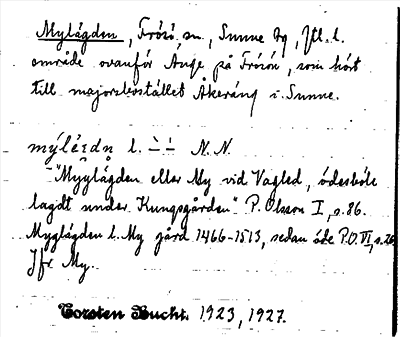 Mylägden, Frösö, sn, Sunne tg, Jtl. l.
område ovanför Ange på Frösön, som hört
till majorsbostället Åkeräng i Sunne.
mýlęgdn l. N.N.
"Myylägden eller My vid Vagled, ödesböle
lagdt under Kungsgården" P. Olsson I, s. 86.
Myglägden l. My gård 1466-1513, sedan öde P.O. VI, s. 26
Jfr My.
Torsten Bucht. 1923, 1927.